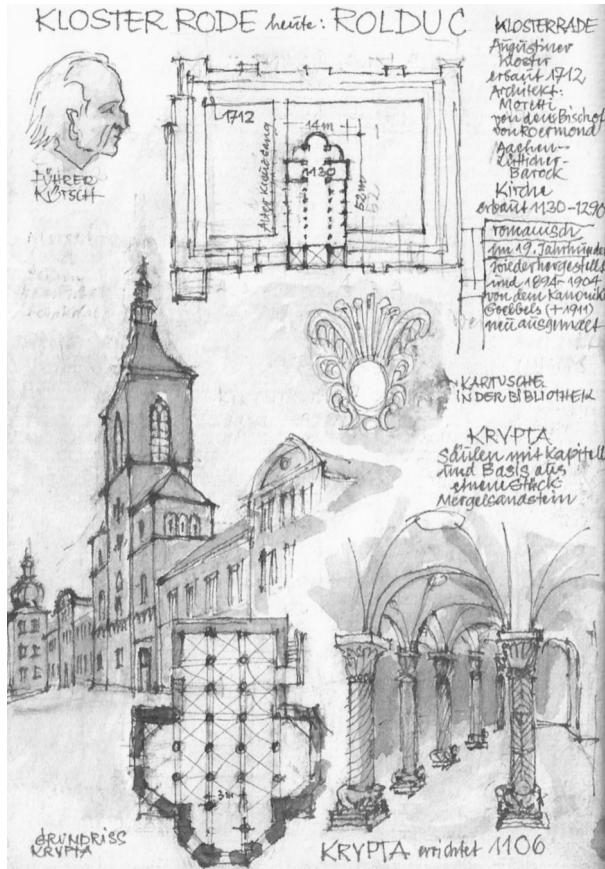 KLOSTER RODE heute: ROLDUC
KLOSTERRADE
Augustiner
Kloster
erbaut 1712
Architekt:
Moretti
von dem Bischof
von Roermond
Aachen-
Lütticher-
Barock
Kirche
erbaut 1130-1290
romanisch
im 19. Jahrhundert
wiederhergestellt
und 1894-1904
von dem Kanonik
Goebbels (+1911)
neu ausgemalt
FÜHRER
1712
14m
Alter Kreuzgang
1130
52m
52
KARTUSCHE
IN DER BIBLIOTHEK
KRYPTA
Säulen mit Kapitell
und Basis aus
einem Stück
Mergelsandstein
3m
GRUNDRISS
KRYPTA
KRYPTA errichtet 1106